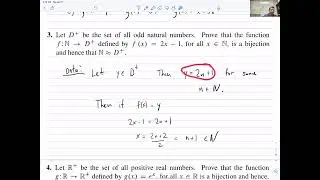 3. Let D⁺ be the set of all odd natural numbers. Prove that the function
f: ℕ → D⁺ defined by f (x) = 2x − 1, for all x ∈ ℕ, is a bijection
and hence that ℕ ≈ D⁺.
Onto: Let y ∈ D⁺ Then y = 2n+1 for some
n ∈ ℕ.
Then if f(x) = y
2x−1 = 2n+1
x = 2n+2 / 2 = n+1 ∈ ℕ
4. Let ℝ⁺ be the set of all positive real numbers. Prove that the function
g: ℝ → ℝ⁺ defined by g(x) = eˣ, for all x ∈ ℝ is a bijection and hence,